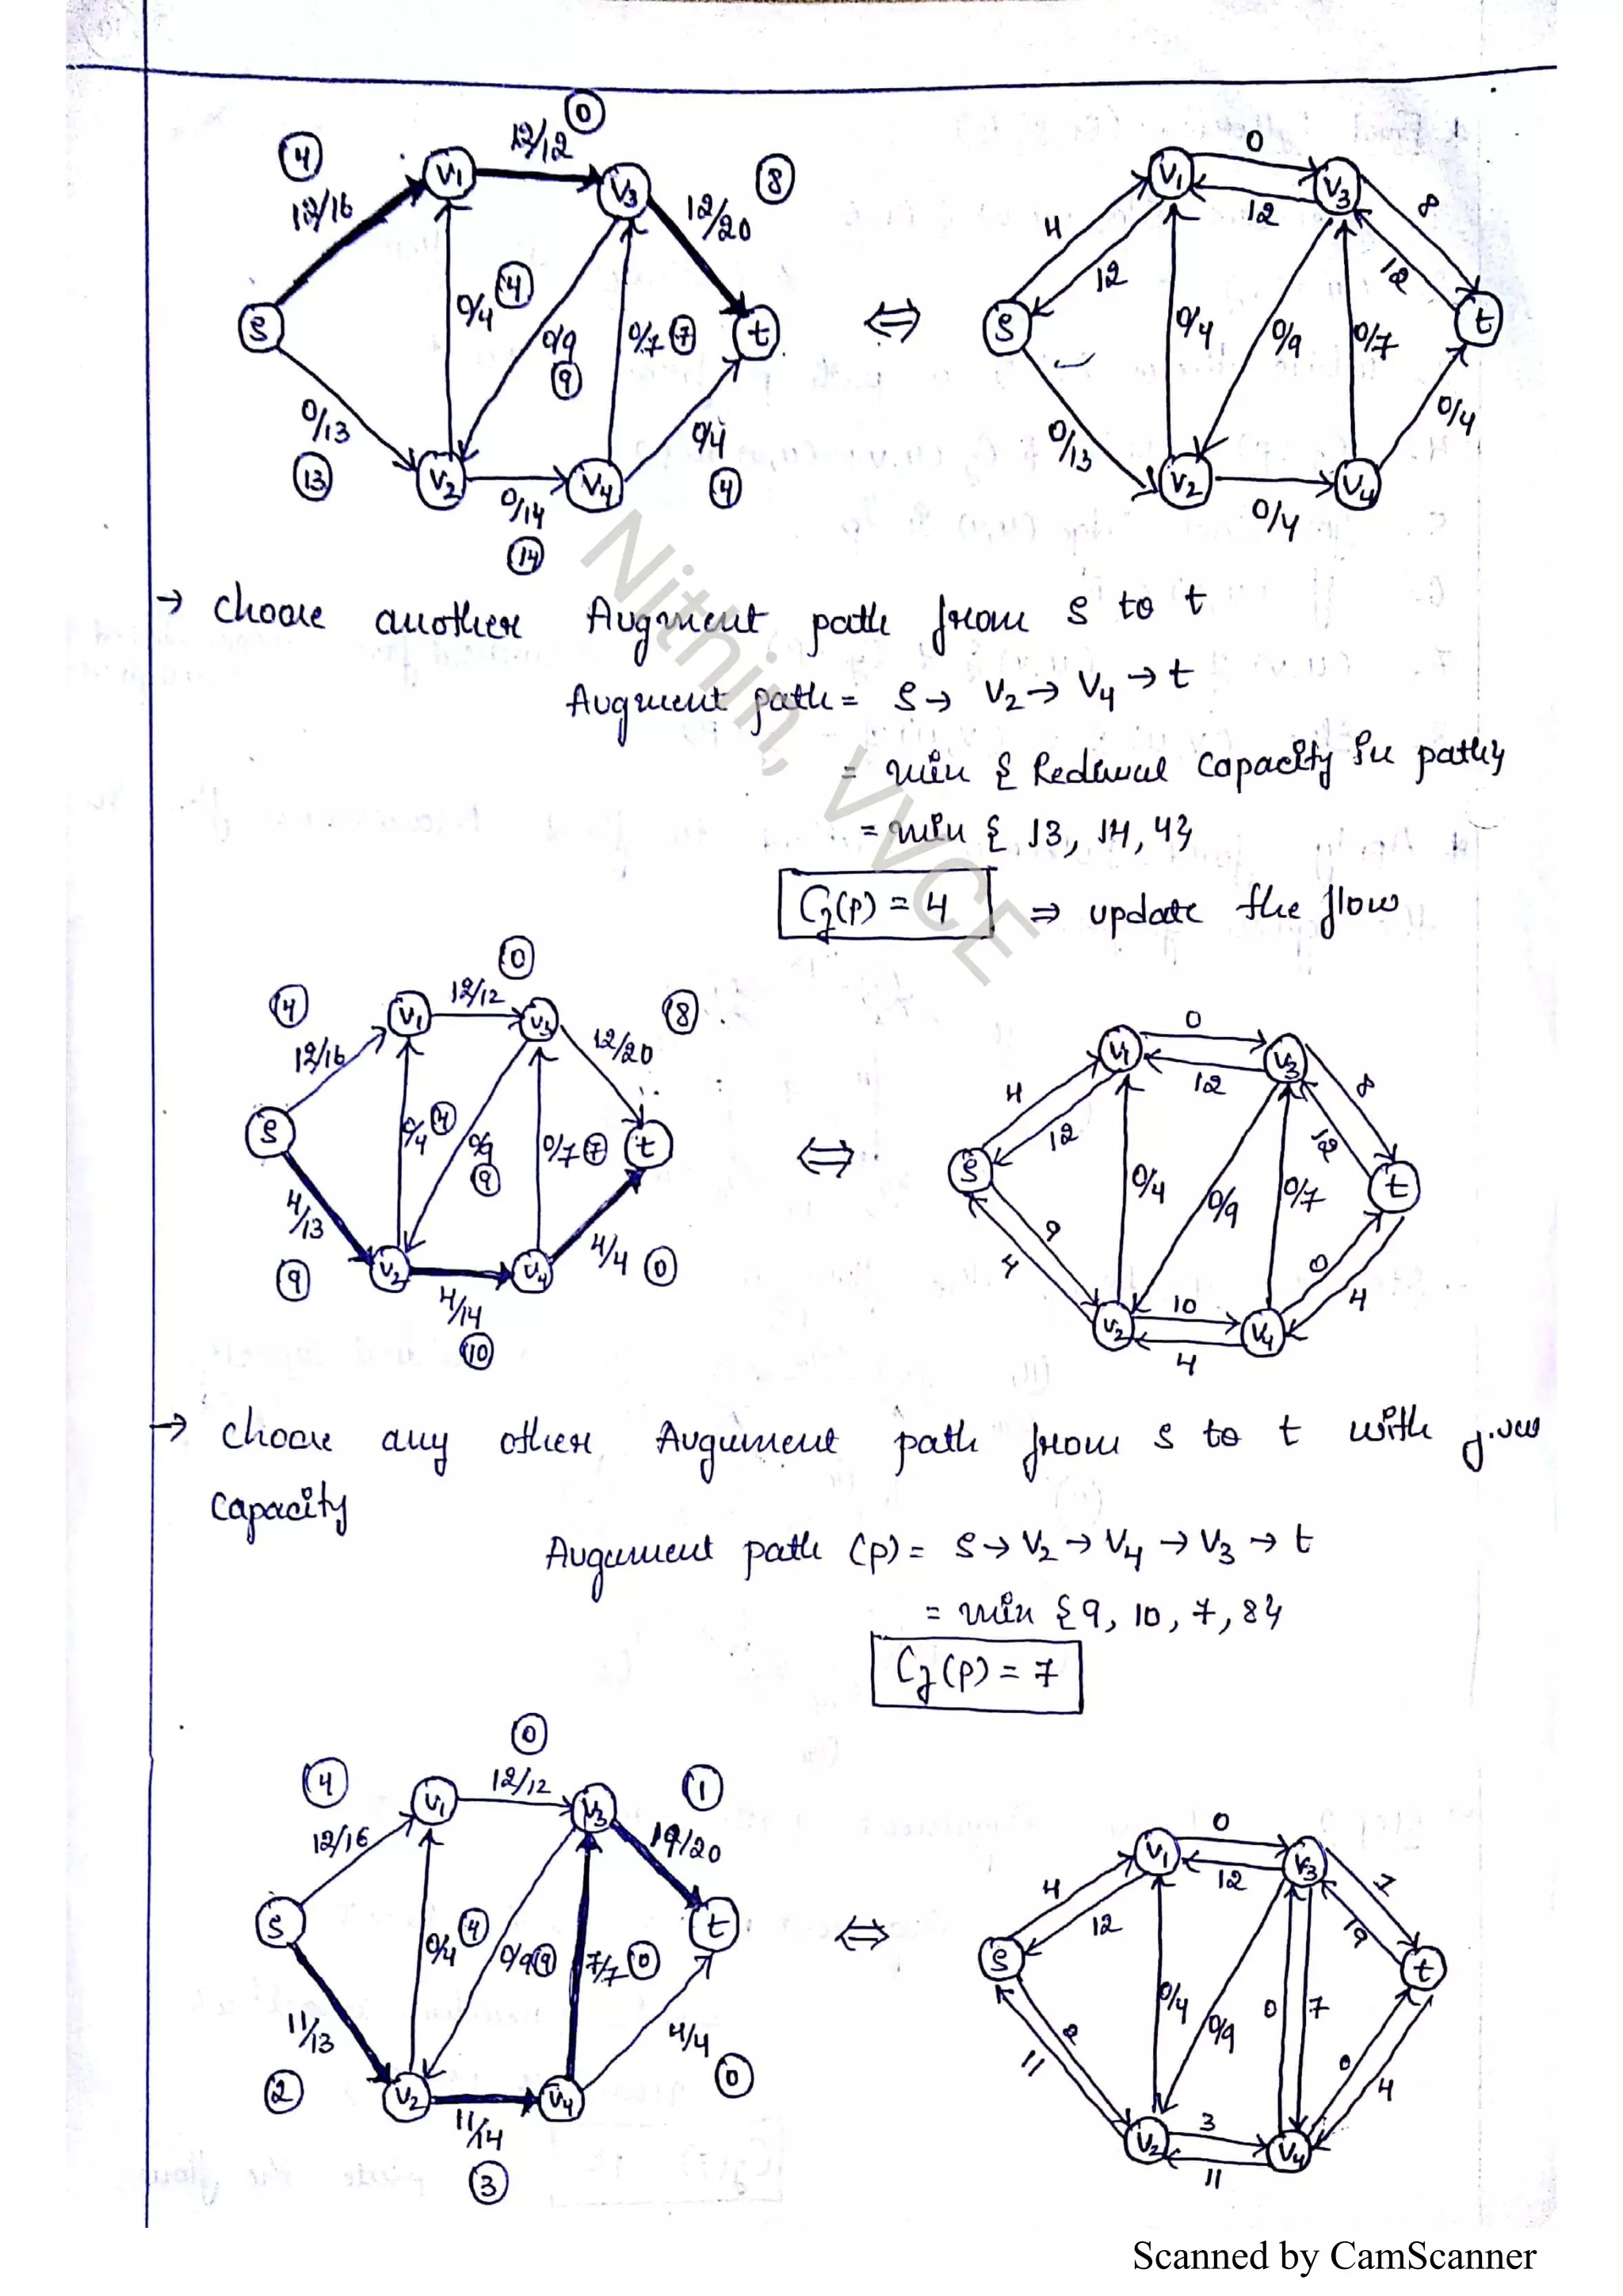 0
4 12/12 8
12/16 V1 V3 12/20
0/4 4 0/9 9 0/7 7
S t
0/13 V2 V4 0/4
13 0/14 4
14
⇔
0
V1 V3 8
4 12 12 12
S 0/4 0/9 0/7 t
0/13 V2 V4 0/4
0/4
→ choose another Augment path from S to t
Augment path = S → V2 → V4 → t
= min { Residual Capacity in path}
= min { 13, 14, 4}
Cf(P) = 4 ⇒ update the flow
0
4 V1 12/12 V3 8
12/16 12/20
S 0/4 4 0/9 9 0/7 7 t
4/13 4/4 0
9 V2 4/14 V4
10
⇔
0
V1 12 V3 8
4 12 12
S 0/4 0/9 0/7 t
9 4 0 4
V2 10 V4
4
→ choose any other Augument path from S to t with
Capacity
Augument path (P) = S → V2 → V4 → V3 → t
= min {9, 10, 7, 8}
Cf(P) = 7
0
4 V1 12/12 V3 1
12/16 19/20
S 0/4 4 0/9 9 7/7 0 t
11/13 4/4
2 V2 11/14 V4 0
3
⇔
0
V1 12 V3 1
4 12 19
S 0/4 0/9 0 7 t
2 11 0 4
V2 3 V4
11
Nithin, VVCE
Scanned by CamScanner